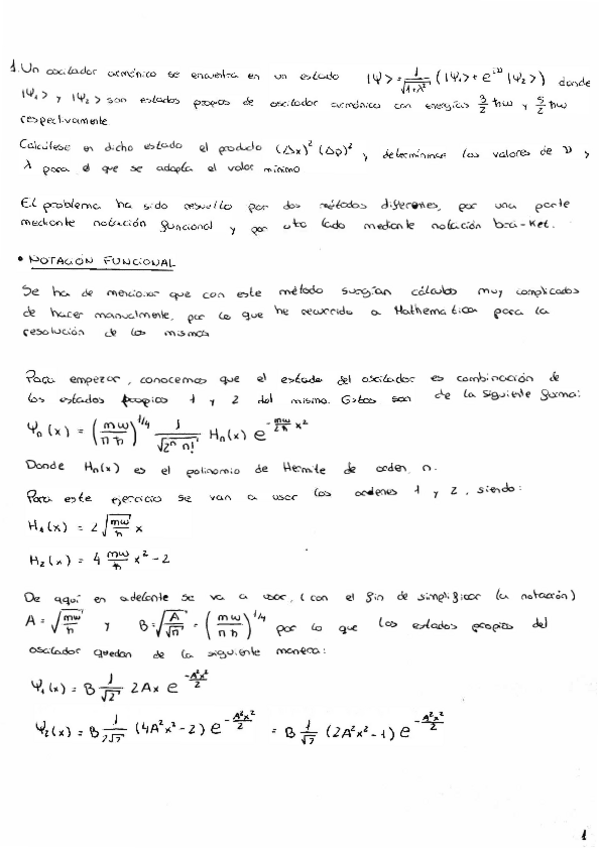 1. Un oscilador armónico se encuentra en un estado |Ψ> = 1/√(1+λ²) (|Ψ₁> + e^{iν} |Ψ₂>) donde
|Ψ₁> y |Ψ₂> son estados propios de oscilador armónico con energías 3/2 ħω y 5/2 ħω
respectivamente
Calcúlese en dicho estado el producto (Δx)² (Δp)² y determínense los valores de ν y
λ para el que se adopta el valor mínimo
El problema ha sido resuelto por dos métodos diferentes, por una parte
mediante notación funcional y por otro lado mediante notación bra-ket.
• NOTACIÓN FUNCIONAL
Se ha de mencionar que con este método surgían cálculos muy complicados
de hacer manualmente, por lo que he recurrido a Mathematica para la
resolución de los mismos
Para empezar, conocemos que el estado del oscilador es combinación de
los estados propios 1 y 2 del mismo. Estos son de la siguiente forma:
Ψₙ(x) = (mω/πħ)^{1/4} 1/√(2ⁿ n!) Hₙ(x) e^{-mω/2ħ x²}
Donde Hₙ(x) es el polinomio de Hermite de orden n.
Para este ejercicio se van a usar los ordenes 1 y 2, siendo:
H₁(x) = 2√(mω/ħ) x
H₂(x) = 4 mω/ħ x² - 2
De aquí en adelante se va a usar, (con el fin de simplificar la notación)
A = √(mω/ħ) y B = √(A/√π) = (mω/πħ)^{1/4} por lo que los estados propios del
oscilador quedan de la siguiente manera:
Ψ₁(x) = B 1/√2 2Ax e^{-A²x²/2}
Ψ₂(x) = B 1/2√2 (4A²x² - 2) e^{-A²x²/2} = B 1/√2 (2A²x² - 1) e^{-A²x²/2}
1